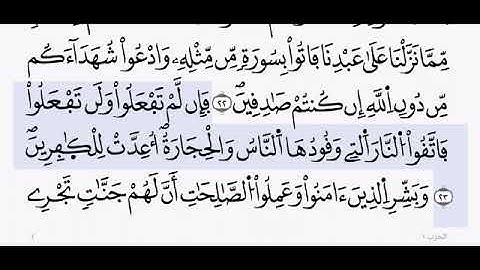 مِّمَّا نَزَّلْنَا عَلَىٰ عَبْدِنَا فَاتُواْ بِسُورَةٍ مِّن مِّثْلِهِۦ وَادْعُواْ شُهَدَآءَكُم
مِّن دُونِ اِ۬للَّهِ إِن كُنتُمْ صَٰدِقِينَۖ ٢٢ فَإِن لَّمْ تَفْعَلُواْ وَلَن تَفْعَلُواْ
فَاتَّقُواْ اُ۬لنَّارَ اَ۬لتِے وَقُودُهَا اَ۬لنَّاسُ وَالْحِجَارَةُۖ أُعِدَّتْ لِلْكَٰفِرِينَۖ
٢٣ وَبَشِّرِ اِ۬لذِينَ ءَامَنُواْ وَعَمِلُواْ اُ۬لصَّٰلِحَٰتِ أَنَّ لَهُمْ جَنَّٰتٖ تَجْرِے
الحزب ١